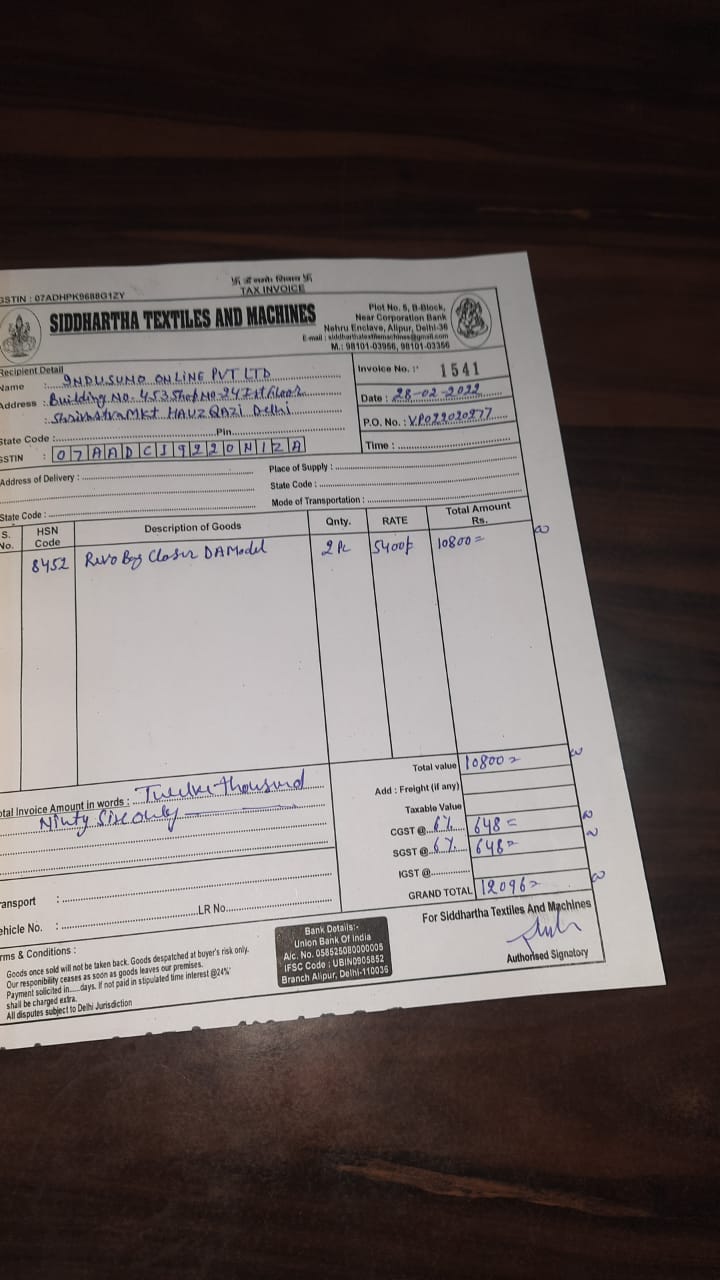 卐 श्री गणेशाय नमः 卐
GSTIN : 07ADHPK9688G1ZY
TAX INVOICE
SIDDHARTHA TEXTILES AND MACHINES
Plot No. 5, B-Block,
Near Corporation Bank
Nehru Enclave, Alipur, Delhi-36
E-mail : siddharthatextilemachines@gmail.com
M.: 98101-03956, 98101-03356
Recipient Detail
Name : INDUSUNO ONLINE PVT LTD
Address : Building No. 453 Shop No. 247 1st Floor
Mkt HAUZ QAZI Delhi
State Code : Pin
GSTIN : 07AADCI9220N1ZA
Invoice No. : 1541
Date : 28-02-2022
P.O. No. : VP022020277
Time :
Address of Delivery :
State Code :
Place of Supply :
State Code :
Mode of Transportation :
S. No. HSN Code Description of Goods Qnty. RATE Total Amount Rs.
8452 Revo Bag Closer DA Model 2 Pc 5400/- 10800=
Total value 10800=
Add : Freight (if any)
Taxable Value
CGST @ 6% 648=
SGST @ 6% 648=
IGST @
GRAND TOTAL 12096=
Total Invoice Amount in words : Twelve thousand
Ninty Six only
Transport :
LR No.
Vehicle No. :
Terms & Conditions :
Goods once sold will not be taken back. Goods despatched at buyer's risk only.
Our responibility ceases as soon as goods leaves our premises.
Payment solicited in.....days. If not paid in stipulated time interest @24%
shall be charged extra.
All disputes subject to Delhi Jurisdiction
Bank Details:-
Union Bank Of India
A/c. No. 058525080000005
IFSC Code : UBIN0905852
Branch Alipur, Delhi-110036
For Siddhartha Textiles And Machines
Authorised Signatory